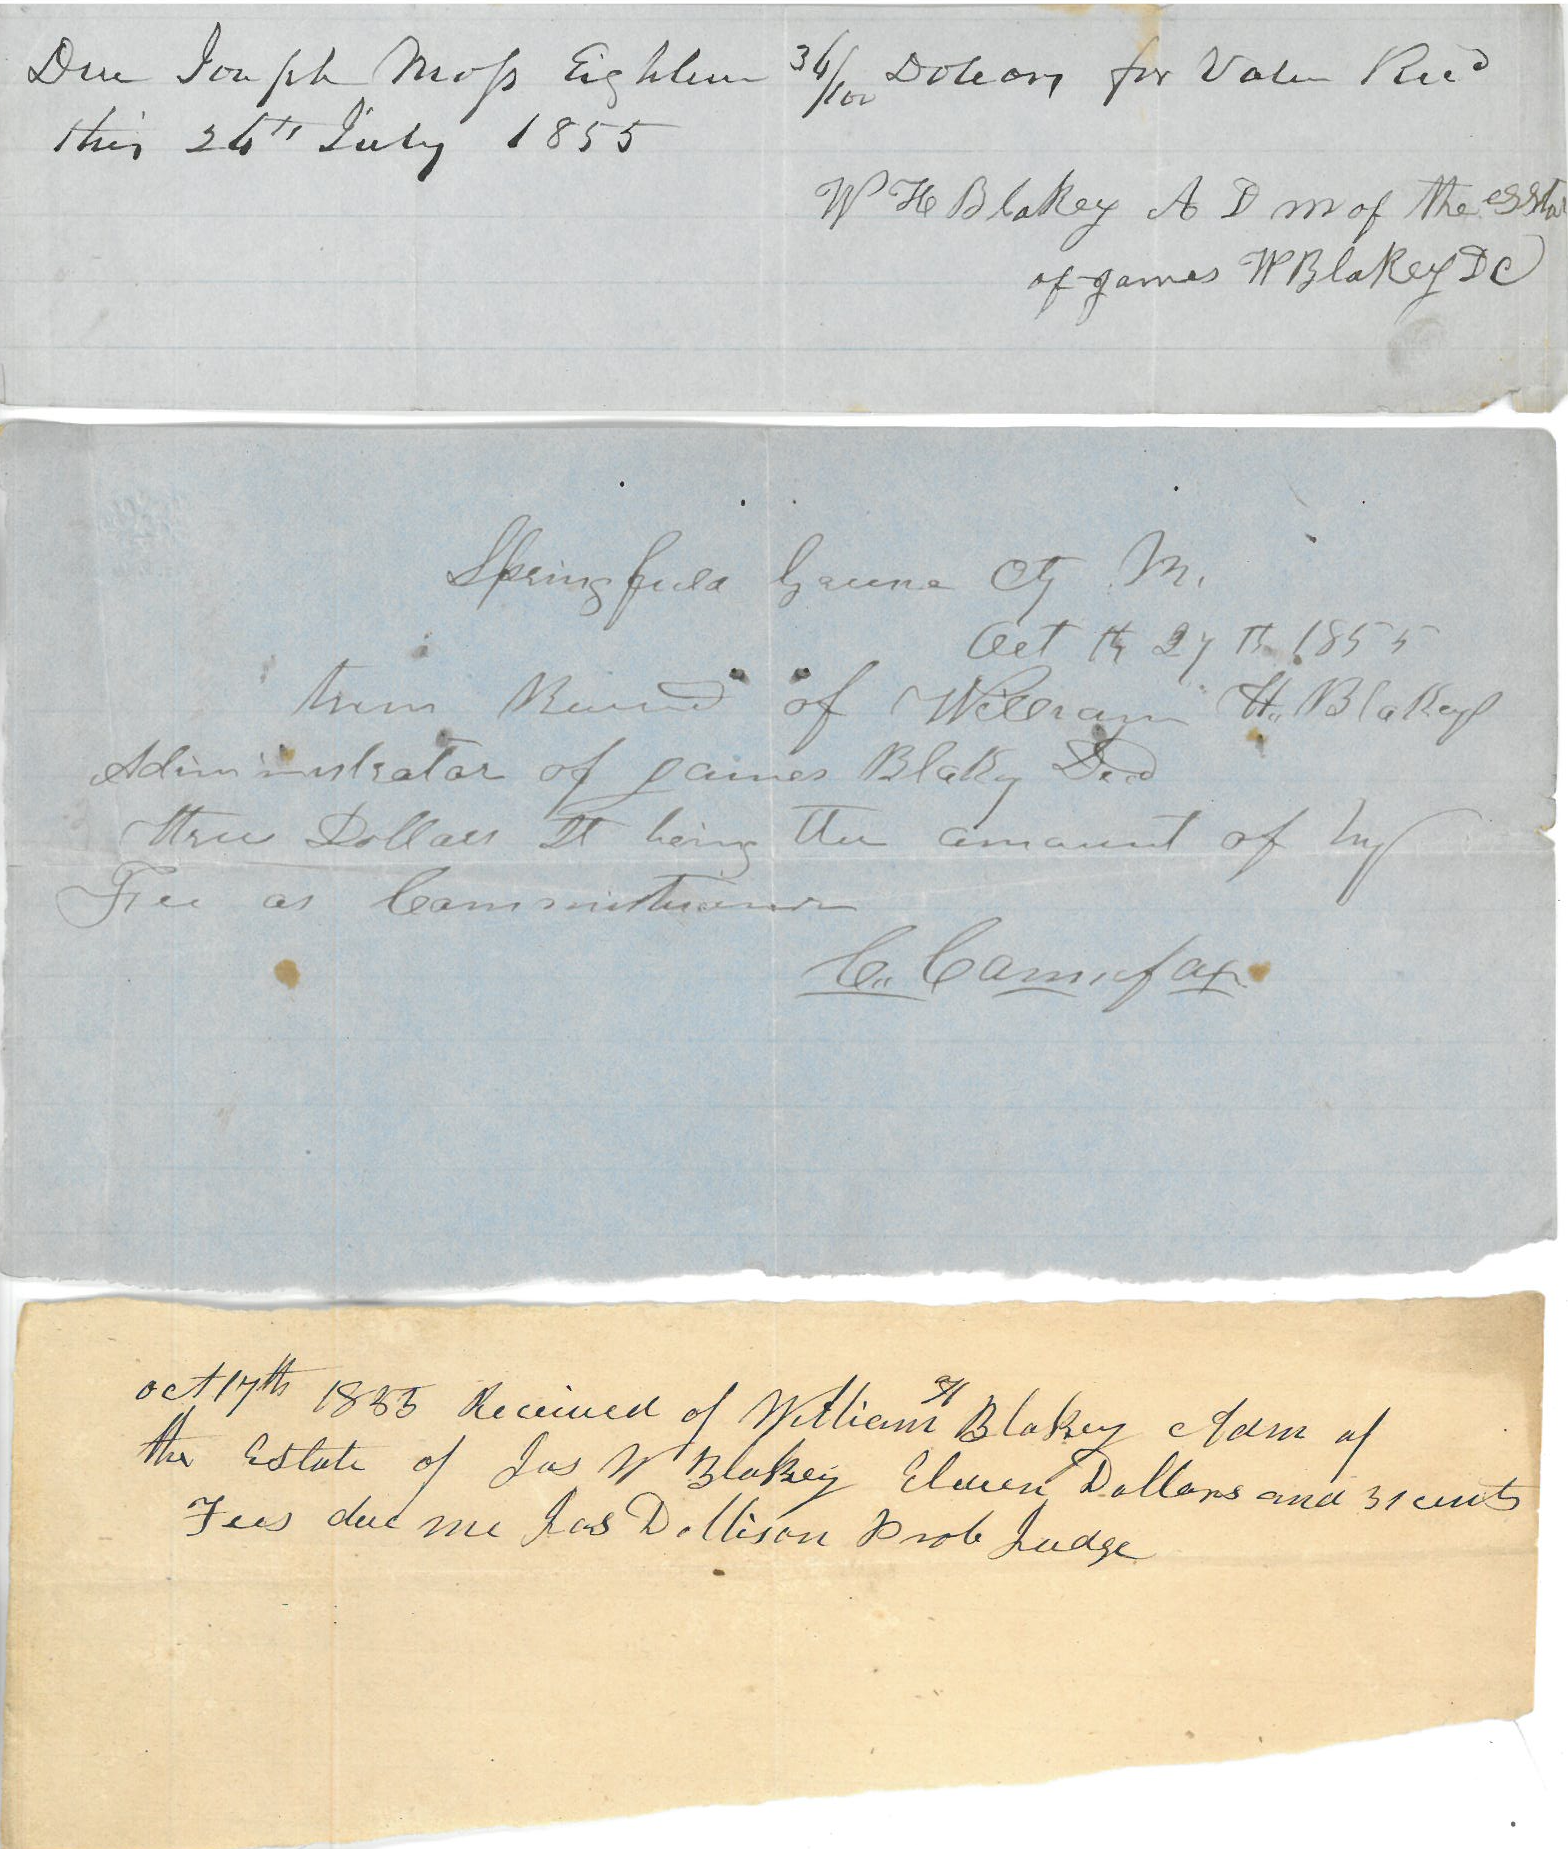 Due Joseph Moss Eighteen 36/100 Dollars for Value Recd
this 26th July 1855
W H Blakey A D m of the esstat
of james W Blakey DC
Springfield Greene Cty M.
Oct th 27 th 1855
then Received of William H. Blakey
Administrator of james Blaky Decd
three Dollars It being the amount of my
Fee as Commissioner
C. Cannefax
oct 17th 1855 Received of William H Blakey Adm of
the Estate of Jas W Blakey Eleven Dollars and 31 cents
Fees due me Jas Dollison Prob Judge